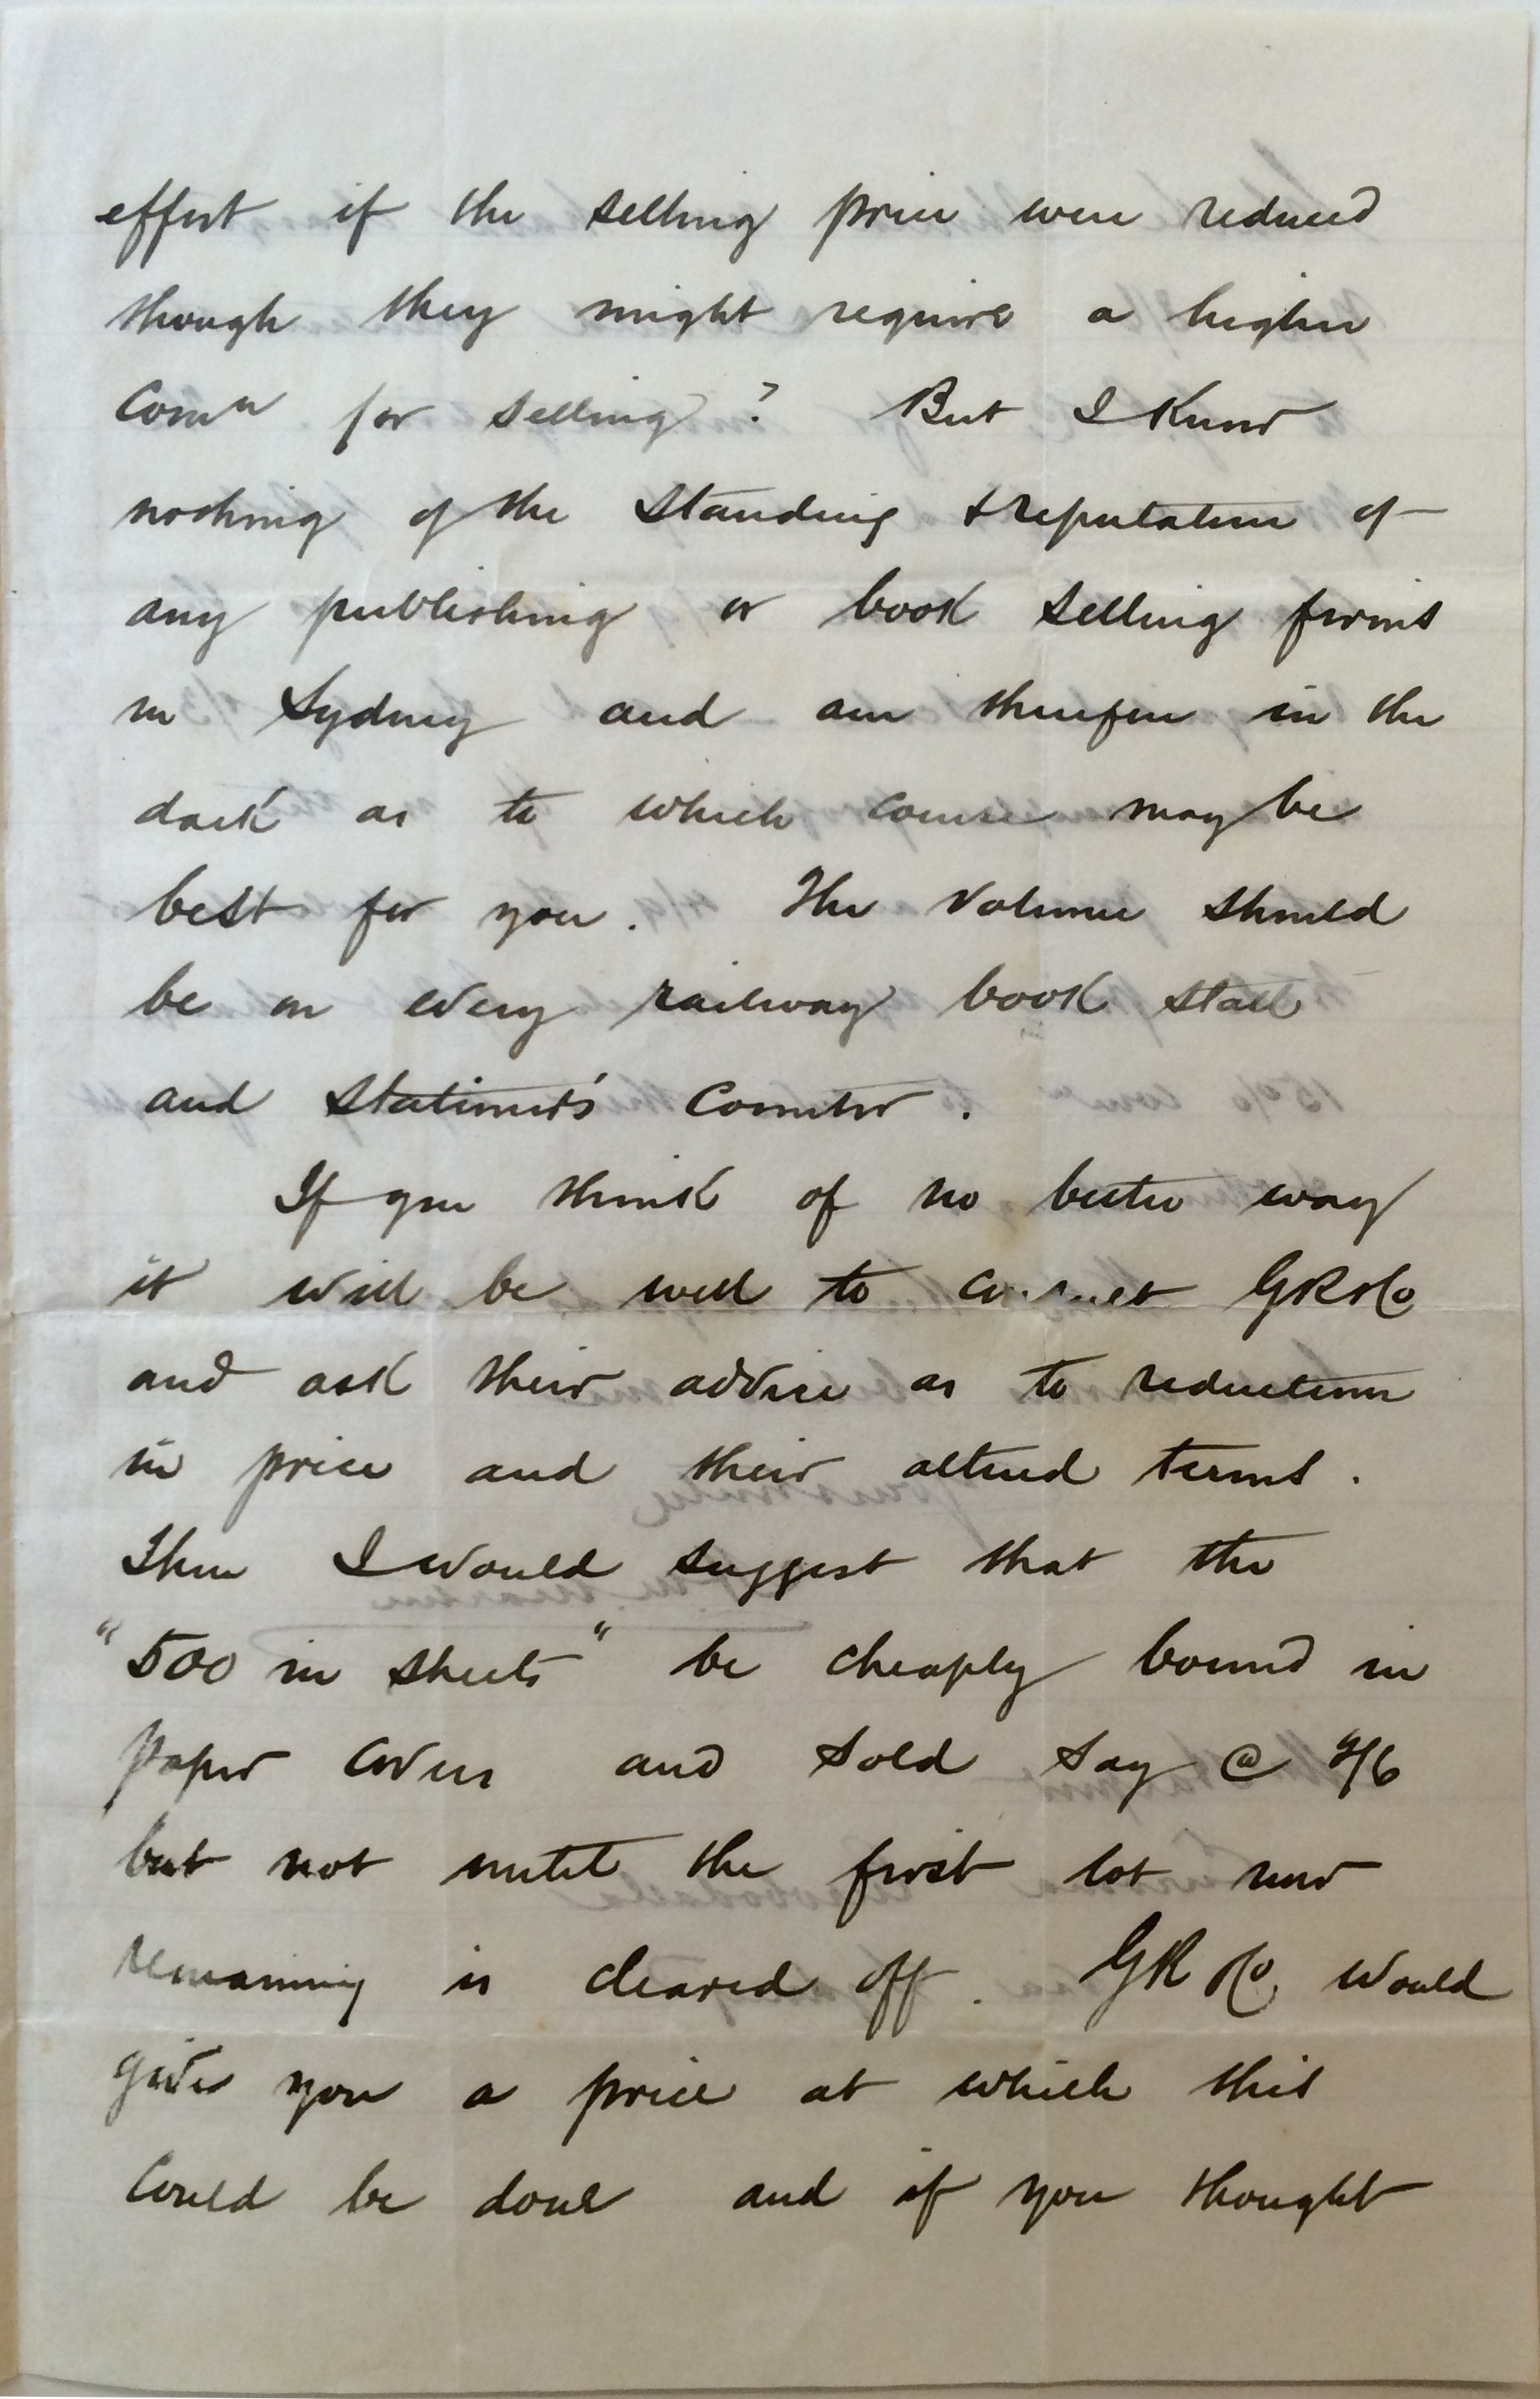 effort if the selling price were reduced
though they might require a higher
Comn for selling? But I Know
nothing of the Standing & reputation of
any publishing or book selling firms
in Sydney and am therefore in the
dark as to which course may be
best for you. The Volume should
be on every railway book stall
and Stationer's Counter.
If you think of no better way
it will be well to consult GR&Co
and ask their advice as to reduction
in price and their altered terms.
Then I would suggest that the
"500 in sheets" be cheaply bound in
paper covers and sold say @ 2/6
but not until the first lot now
remaining is cleared off. GR&Co would
give you a price at which this
could be done and if you thought